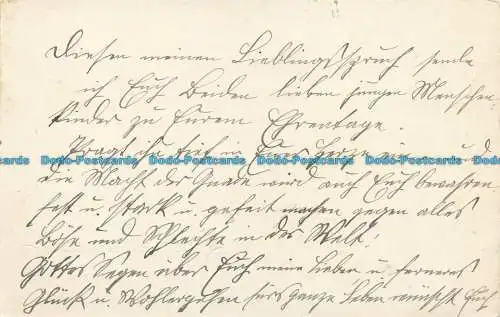 Diesen meinen Lieblingsspruch sende
ich Euch Beiden lieben jungen Menschen-
kinder zu Eurem Ehrentage.
Prägt ihn tief in Euer Herze ein und
die Macht der Gnade wird auch Euch bewahren
fest u. stark u. gefeit machen gegen alles
Böse und Schlechte in der Welt!
Gottes Segen über Euch meine Lieben u. ferneres
Glück u. Wohlergehen fürs ganze Leben wünscht Euch
Dodo-Postcards Dodo-Postcards Dodo-Postcards Dodo-Postcards Dodo-Postcards Dodo-Postcards